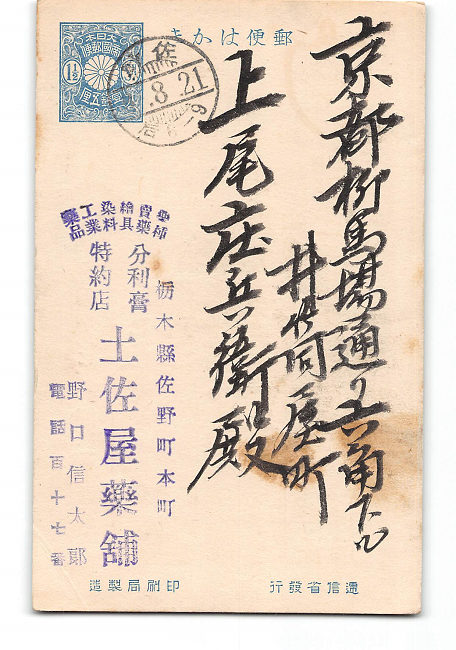 郵便はかき
大日本帝國郵便
1½
壹錢五厘
佐
.8.21
京都柳馬場通り六角下ル
井伊同屋町
上尾庄兵衛殿
賣藥繪具染料工業藥品
分利膏
特約店
栃木縣佐野町本町
土佐屋藥舖
野口信太郎
電話百十七番
造製局刷印
行發省信遞